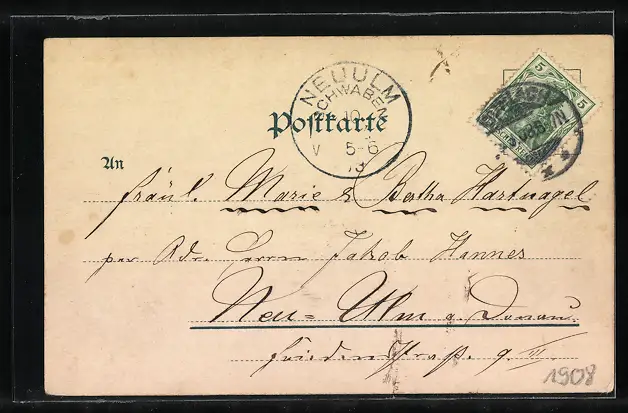 NEUULM
SCHWABEN
10
V 5-6
Postkarte
5 5
An
Fräul. Marie & Bertha Hartnagel
per Adr. Herrn Jakob Hannes
Neu-Ulm a. Donau
Friedenstraße. 9. III.
1908